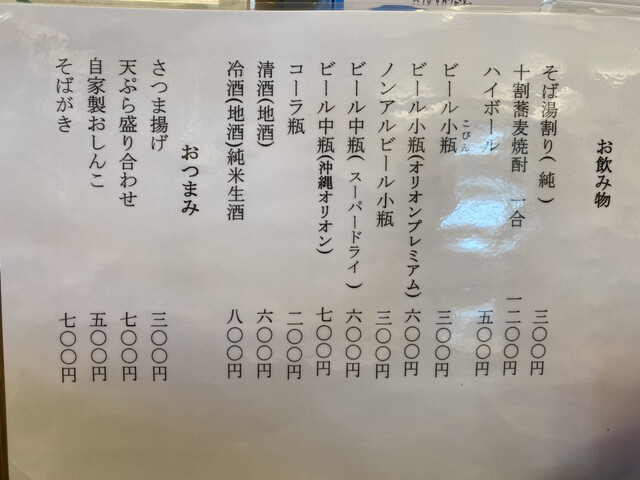 お飲み物
そば湯割り(純) 三〇〇円
十割蕎麦焼酎 一合 一二〇〇円
ハイボール 五〇〇円
ビール小瓶 こびん 三〇〇円
ビール小瓶(オリオンプレミアム) 六〇〇円
ノンアルビール小瓶 三〇〇円
ビール中瓶(スーパードライ) 六〇〇円
ビール中瓶(沖縄オリオン) 七〇〇円
コーラ瓶 二〇〇円
清酒(地酒) 六〇〇円
冷酒(地酒)純米生酒 八〇〇円
おつまみ
さつま揚げ 三〇〇円
天ぷら盛り合わせ 七〇〇円
自家製おしんこ 五〇〇円
そばがき 七〇〇円